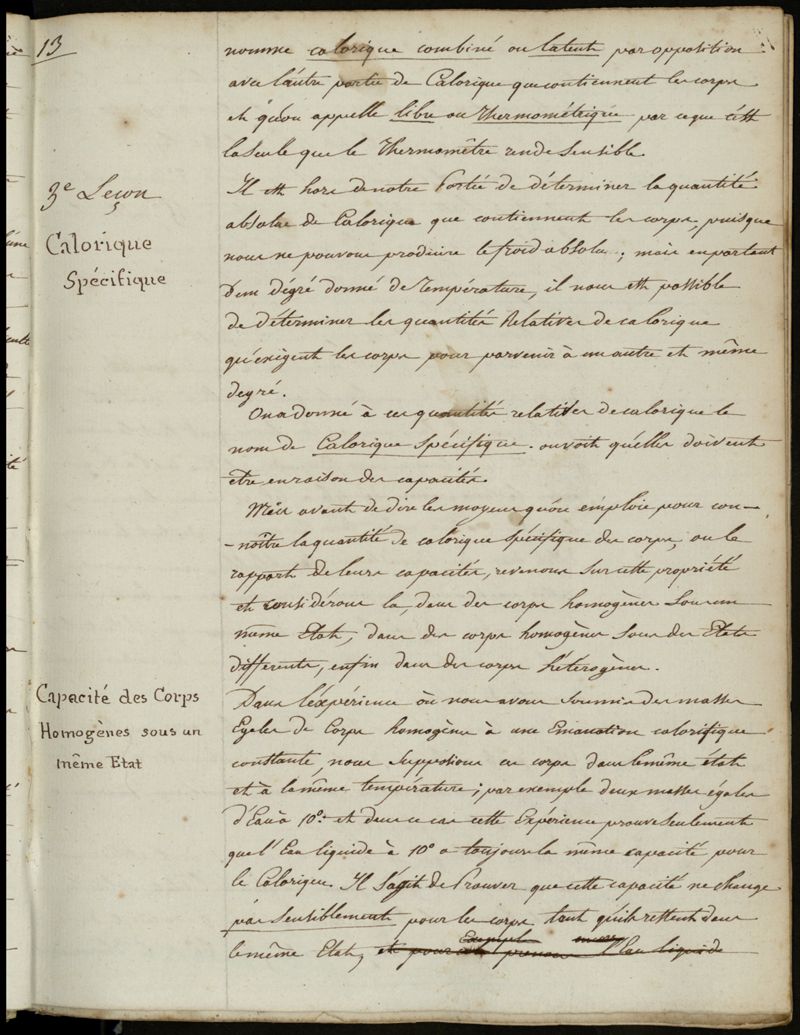 13
nomme calorique combiné ou latent par opposition
avec l'autre partie de Calorique que contiennent les corps
et qu'on appelle libre ou thermométrique par ce que c'est
la seule que le thermomètre rende sensible.
3e Leçon
Calorique
Spécifique
Il est hors de notre Portée de déterminer la quantité
absolue de Calorique que contiennent les corps, puisque
nous ne pouvons produire le froid absolu; mais en partant
d'un dégré donné de température, il nous est possible
de déterminer les quantités Relatives de calorique
qu'exigent les corps pour parvenir à un autre et même
degré.
On a donné à ces quantités relatives de calorique le
nom de Calorique Spécifique. on voit qu'elles doivent
etre en raison des capacités.
Mais avant de dire les moyens qu'on emploie pour con-
-noître la quantité de calorique spécifique des corps, ou le
rapport de leurs capacités, revenons sur cette propriété
et considérons la, dans des corps homogènes sous un
même Etat, dans des corps homogènes sous des Etats
differents, enfin dans des corps hétérogènes.
Capacité des Corps
Homogènes sous un
même Etat
Dans l'expérience où nous avons soumis des masses
Egales de Corps homogène à une Emanation calorifique
constante, nous supposions ces corps dans le même état
et à la même température; par exemple deux masses égales
d'Eau à 10°. et dans ce cas cette Expérience prouve seulement
que l'Eau liquide à 10° a toujours la même capacité pour
le Calorique. Il s'agit de Prouver que cette capacité ne change
pas sensiblement pour les corps tant qu'ils restent dans
le même Etat, et pour Exempl prenons encore l'Eau liquide